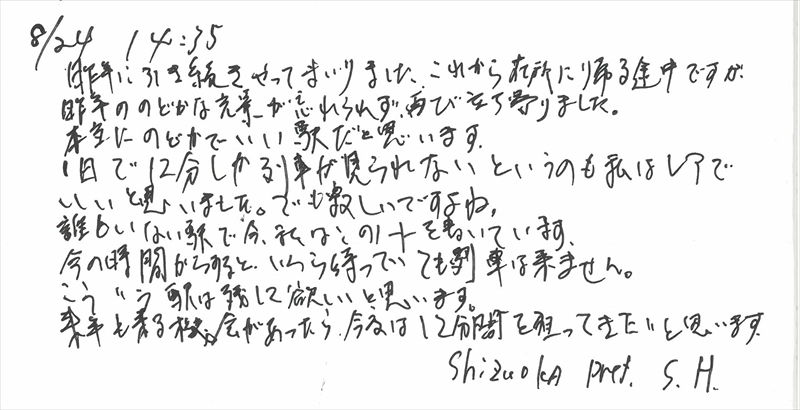 8/24 14:35
昨年に引き続きやってまいりました、これから在所に帰る途中ですが
昨年ののどかな光景が忘れられず、再び立ち寄りました。
本当にのどかでいい駅だと思います。
1日で12分しか列車が見られないというのも私はレアで
いいと思いました。でも寂しいですよね。
誰もいない駅で今、私はこのノートを書いています。
今の時間からすると、いくら待っていても列車は来ません。
こういう駅は残して欲しいと思います。
来年も来る機会があったら、今度は12分間を狙ってきたいと思います。
Shizuoka pref. S.H.